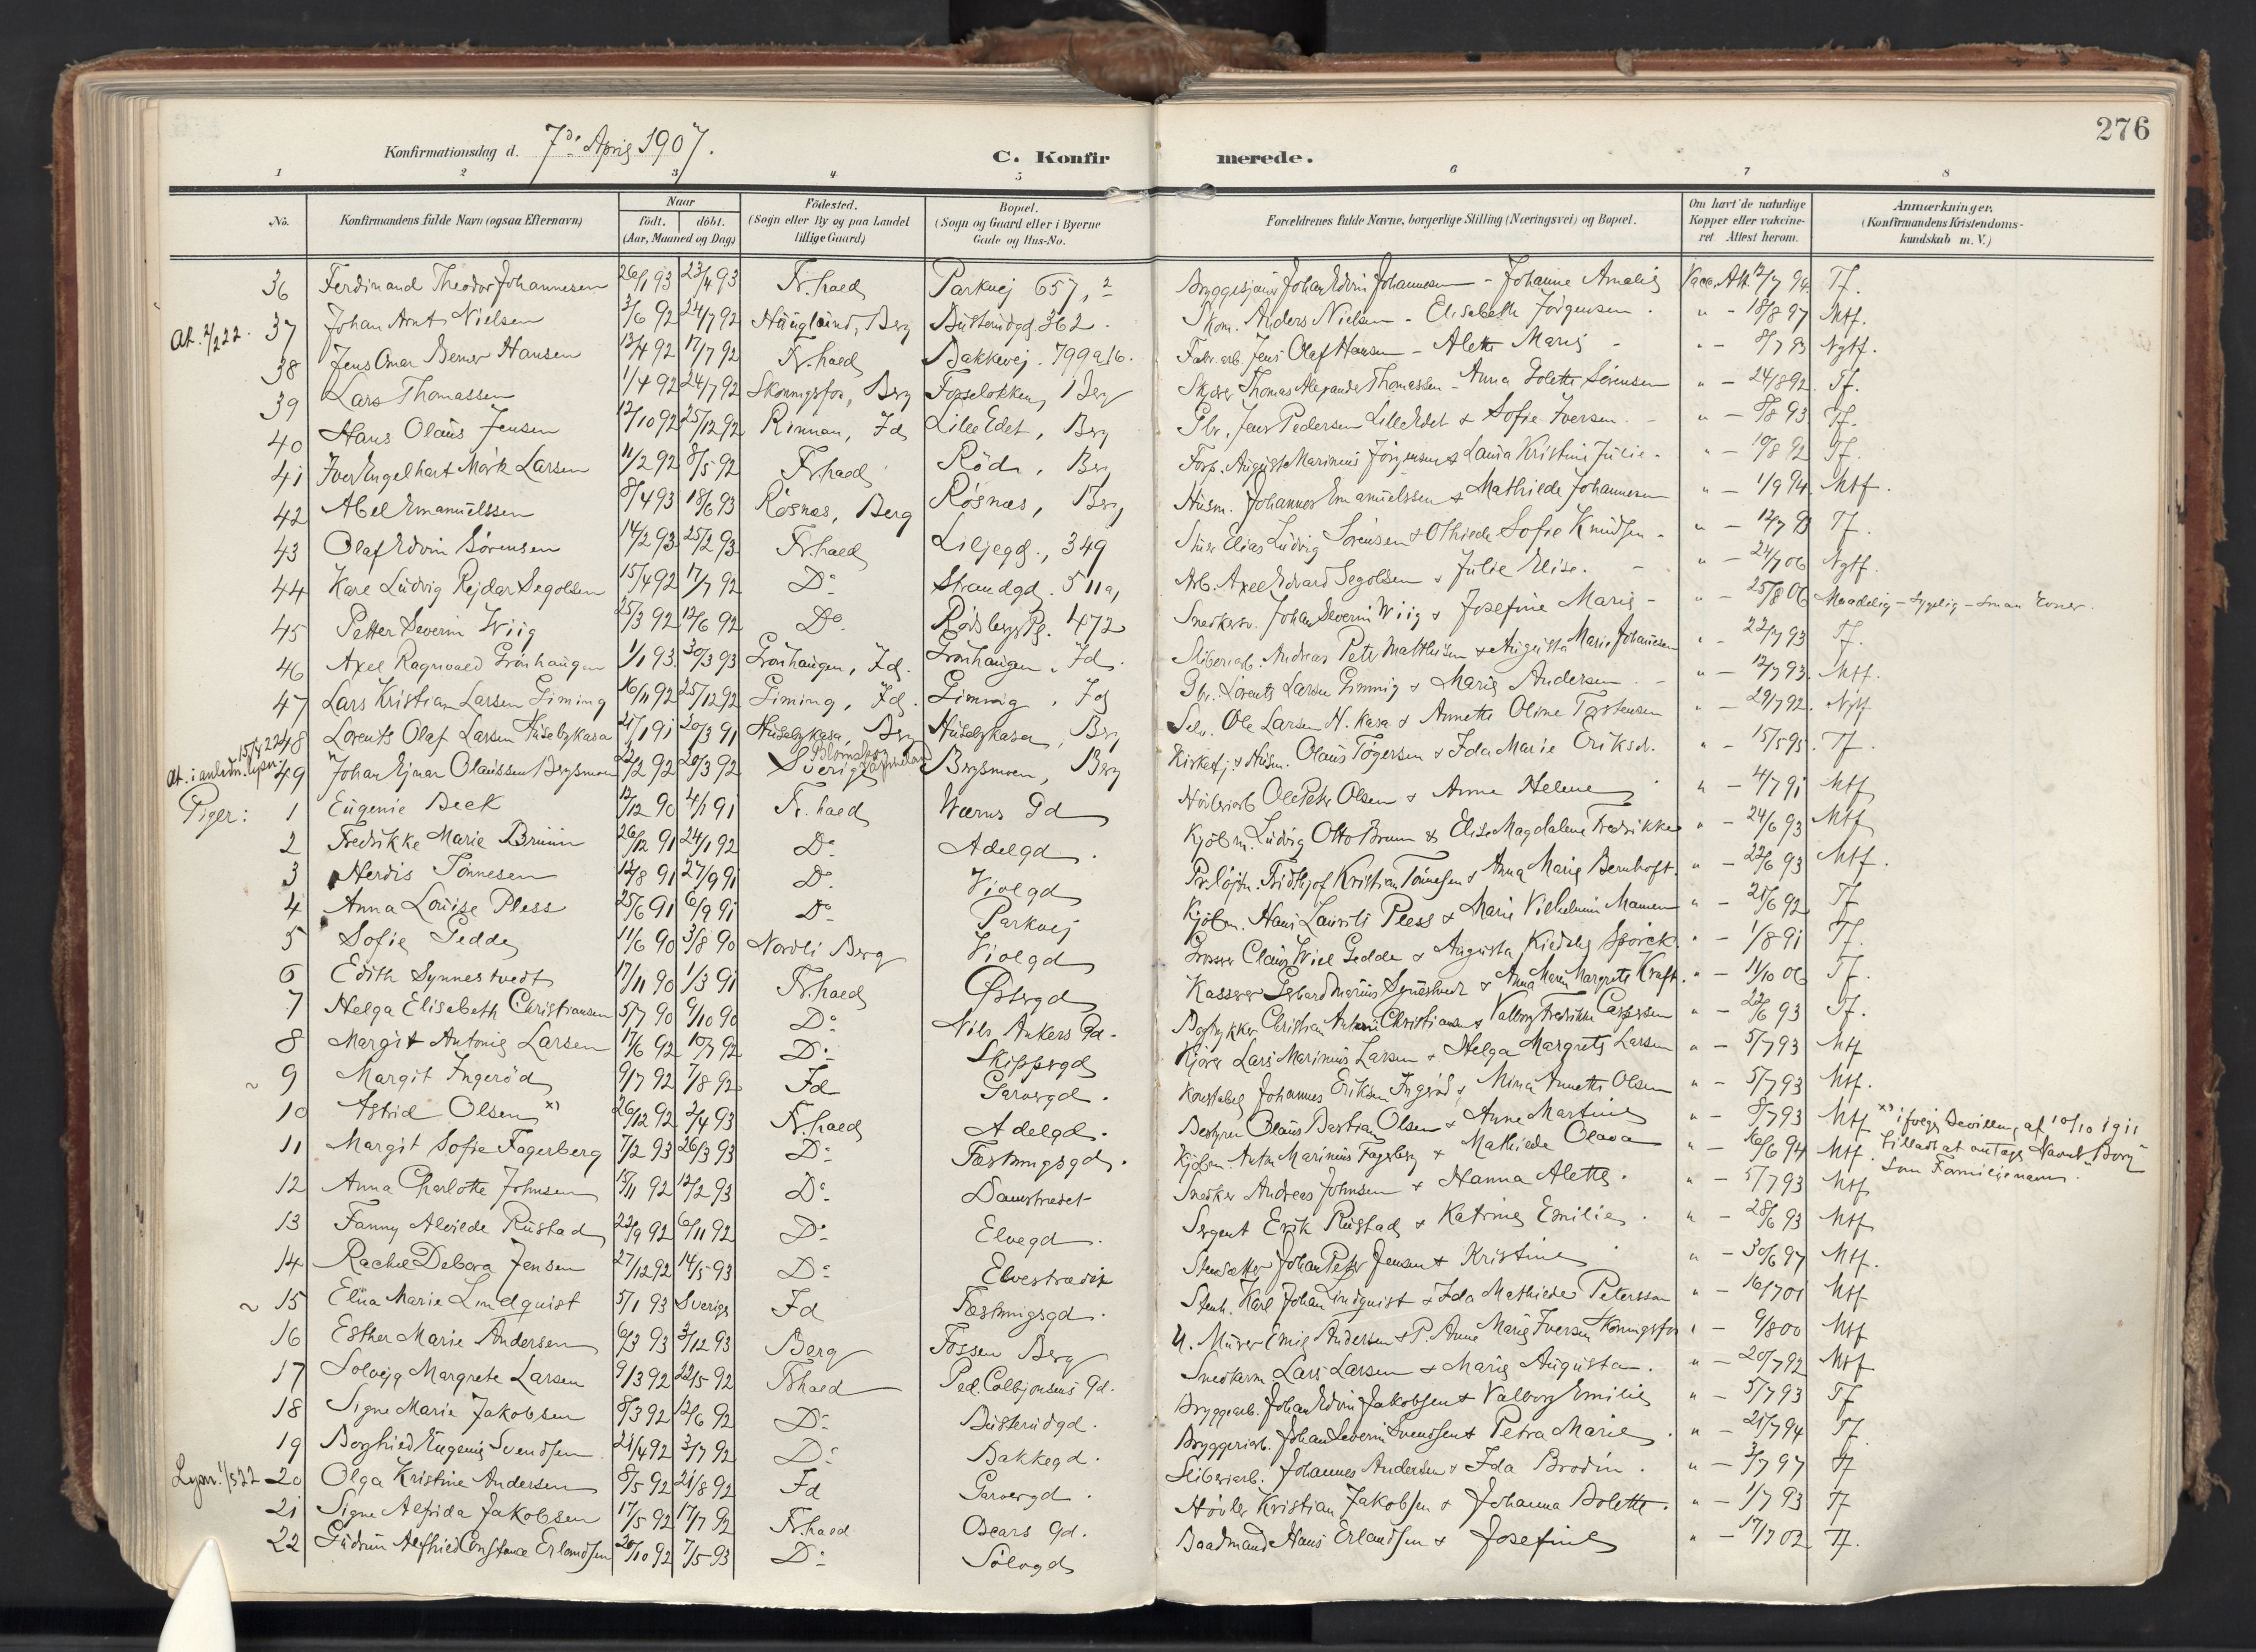 276
Konfirmationsdag d. 7de April 1907.
C. Konfirmerede.
1 2 3 4 5 6 7 8
No. Konfirmandens fulde Navn (ogsaa Efternavn) Naar født. døbt. (Aar, Maaned og Dag) Fødested. (Sogn eller By og paa Landet tillige Gaard) Bopæl. (Sogn og Gaard eller i Byerne Gade og Hus-No. Forældrenes fulde Navne, borgerlige Stilling (Næringsvei) og Bopæl. Om havt de naturlige Kopper eller vakcineret Attest herom. Anmærkninger, (Konfirmandens Kristendomskundskab m. V.)
36 Ferdinand Theodor Johannesen 26/1 93 23/4 93 Fr.hald Parkvej 657, 2 Bryggesjauer Johan Edvin Johannesen - Johanne Amalie Vacc. Att. 12/7 94. Tf.
At. 2/2 22. 37 Johan Arnt Nielsen 3/6 92 24/7 92 Hauglund, Berg Busterudgd. 362. Skom. Anders Nielsen - Elisabeth Jørgensen. " - 18/8 97 Mtf.
38 Jens Omar Berner Hansen 13/4 92 17/7 92 Fr.hald Bakkevej. 799a16. Fabr.arb. Jens Olaf Hansen - Alette Marie - " - 8/7 93 Ngtf.
39 Lars Thomassen 1/4 92 24/7 92 Skonningsfos, Berg Fosseløkken, Berg Skræder Thomas Alexander Thomassen - Anna Bolette Sørensen " - 24/8 92. Tf.
40 Hans Olaus Jensen 12/10 92 25/12 92 Rinnan, Id Lille Edet, Berg Gbr. Jens Pedersen Lille Edet & Sofie Iversen. " - 8/8 93. Tf.
41 Iver Engelhart Mørk Larsen 11/2 92 8/5 92 Fr.hald Rød, Berg Forp. August Marinius Jørgensen & Laura Kristine Julie. " - 19/8 92 Tf.
42 Abel Emanuelssen 8/4 93 18/6 93 Røsnæs, Berg Røsnæs, Berg Husm. Johannes Emanuelssen & Mathilde Johannesen " - 1/9 94. Mtf.
43 Olaf Edvin Sørensen 14/2 93 25/2 93 Fr.hald Liljegd., 349 Elias Ludvig Sørensen & Othilde Sofie Knudsen - " - 12/7 93 Tf.
44 Kare Ludvig Rejdar Segolsen 15/4 92 17/7 92 Do Strandgd. 511a, Arb. Axel Edvard Segolsen & Julie Elise. - " - 24/7 06 Ngtf.
45 Petter Severin Wiig 25/3 92 12/6 92 Do. Rødsbergs Pl. 472 Snedkersv. Johan Severin Wiig & Josefine Marie - " - 25/8 06 Maadelig - sygelig - smaa Evner.
46 Axel Ragnvald Grønhaugen 1/1 93. 30/3 93 Grønhaugen, Id. Grønhaugen, Id. Sliberiarb. Andreas Peter Matthisen & Augusta Marie Johansen " - 22/7 93 Tf.
47 Lars Kristian Larsen Giming 16/11 92 25/12 92 Giming, Id. Giming, Id Gbr. Lorents Larsen Gimmig & Marie Andersen. - " - 12/7 93. Mtf.
48 Lorents Olaf Larsen Husebykasa 21/1 91 30/3 91 Husebykasa, Berg Husebykasa, Berg Selv. Ole Larsen H.kasa & Annette Oline Torstensen " - 29/7 92. Ngtf
At. i anledn. lysn. 15/7 22 49 Johan Ejnar Olaussen Bergsmoen 22/2 92 20/3 92 Blomskog Sverige Värmland Bergsmoen, Berg Kirketj. & Husm. Olaus Tøgersen & Ida Marie Eriksd. " - 15/5 95. Tf.
Piger: 1 Eugenie Beck 12/12 90 4/1 91 Fr.hald Wærns Gd Høvleriarb Ole Peter Olsen & Anne Helene " - 4/7 91 Mtf
2 Fredrikke Marie Bruun 26/12 91 24/1 92 Do Adelgd. Kjøbm. Ludvig Otto Bruun & Elise Magdalene Fredrikke " - 24/6 93 Mtf
3 Herdis Tønnesen 12/8 91 27/9 91 Do Violgd Pr.løjtn. Fridthjof Kristian Tønnesen & Anna Marie Bernhoft. " - 22/6 93 Mtf.
4 Anna Louise Pless 25/6 91 6/9 91 Do Parkvej Kjøbm. Hans Laurits Pless & Marie Vilhelmine Mamen " - 21/6 92 Tf
5 Sofie Gedde 11/6 90 3/8 90 Nordli Berg Violgd Grosser Claus Wiel Gedde & Augusta Kjedsby Spørck. " - 1/8 91 Tf.
6 Edith Synnestvedt 17/11 90 1/3 91 Fr.hald Østergd Kasserer Gerhard Marius Synnestvedt & Anna Marie Margrete Kraft. " - 11/10 06 Tf.
7 Helga Elisabeth Christiansen 5/7 90 9/10 90 Do Nils Ankers Gd. Bogtrykker Christian Antonie Christiansen & Valborg Fredrikke Caspersen " - 22/6 93 Tf.
8 Margit Antonie Larsen 17/6 92 10/7 92 Do Skippergd Kjører Lars Marinius Larsen & Helga Margrete Larsen " - 5/7 93 Mtf
~ 9 Margit Ingerød 9/7 92 7/8 92 Id Garvergd. Konstabel Johannes Eriksen Ingerød & Mina Annette Olsen " - 5/7 93 Mtf.
10 Astrid Olsen x) 26/12 92 2/4 93 Fr.hald Adelgd. Bestyrer Olaus Bastian Olsen & Anne Martine " - 8/7 93 Mtf x) ifølge Bevilling af 10/10 1911
11 Margit Sofie Fagerberg 7/2 93 26/3 93 Do Fæstningsgd. Kjøbm. Anton Marinius Fagerberg & Mathilde Olava " - 16/6 94 Mtf. tilladt at antage Navnet "Borg"
12 Anna Charlotte Johnsen 15/11 92 12/2 93 Do Damstrædet Snedker Andreas Johnsen & Hanna Alette. " - 5/7 93 Mtf som Familienavn.
13 Fanny Alvilde Rustad 22/9 92 6/11 92 Do Elvegd. Sergent Erik Rustad & Katrine Emilie. " - 28/6 93 Mtf
14 Rachel Debora Jensen 27/12 92 14/5 93 Do Elvestrædet Stensætter Johan Peter Jensen & Kristine " - 30/6 97 Mtf.
~ 15 Elna Marie Lindquist 5/1 93 Sverige Id Fæstningsgd. Stenh. Karl Johan Lindquist & Ida Mathilde Petersson " - 16/7 01 Mtf
16 Esther Marie Andersen 6/3 93 3/12 93 Berg Fossen Berg U. Murer Emil Andersen & P. Anne Marie Iversen Konningsfos " - 9/8 00 Mtf
17 Solvejg Margrete Larsen 9/3 92 22/5 92 Frhald Ped. Colbjørnsens Gd. Snedkerm Lars Larsen & Marie Augusta. " - 20/7 92 Mtf
18 Signe Marie Jakobsen 8/3 92 12/6 92 Do Busterudgd. Bryggearb. Johan Edvin Jakobsen & Valborg Emilie " - 5/7 93 Tf
19 Borghild Eugenie Svendsen 21/4 92 3/7 92 Do Bakkegd. Bryggeriarb. Johan Severin Svendsen & Petra Marie. " - 21/7 94 Tf.
Lysn. 1/5 22 20 Olga Kristine Andersen 8/5 92 21/8 92 Id Garvergd. Sliberiarb. Johannes Andersen & Ida Brodin. " - 3/7 97 Tf
21 Signe Alfrida Jakobsen 17/5 92 17/7 92 Fr.hald Oscars Gd. Høvler Kristian Jakobsen & Johanna Bolette. " - 1/7 93 Tf
22 Gudrun Alfhild Constance Erlandsen 20/10 92 7/5 93 Do Sølvgd Baadmand Hans Erlandsen & Josefine " - 17/7 02 Tf.